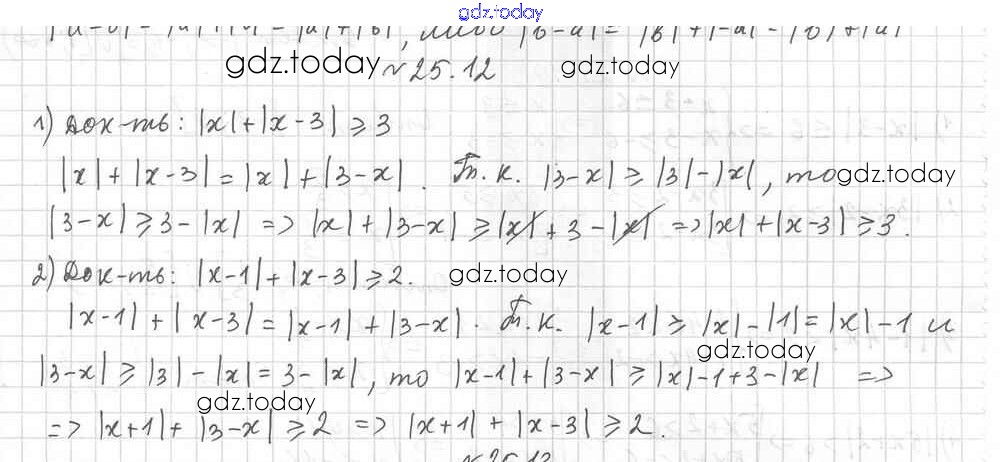 gdz.today
|a-b| = |a|+|b| = |a|+|b|, либо |b-a| = |b|+|-a| = |b|+|a|
gdz.today №25.12 gdz.today
1) Док-ть: |x|+|x-3| ⩾ 3
|x|+|x-3| = |x|+|3-x|. Т.к. |3-x| ⩾ |3|-|x|, то gdz.today
|3-x| ⩾ 3-|x| => |x|+|3-x| ⩾ |x|+3-|x| => |x|+|x-3| ⩾ 3.
2) Док-ть: |x-1|+|x-3| ⩾ 2. gdz.today
|x-1|+|x-3| = |x-1|+|3-x|. Т.к. |x-1| ⩾ |x|-|1| = |x|-1 и
gdz.today
|3-x| ⩾ |3|-|x| = 3-|x|, то |x-1|+|3-x| ⩾ |x|-1+3-|x| =>
gdz.today
=> |x+1|+|3-x| ⩾ 2 => |x+1|+|x-3| ⩾ 2.